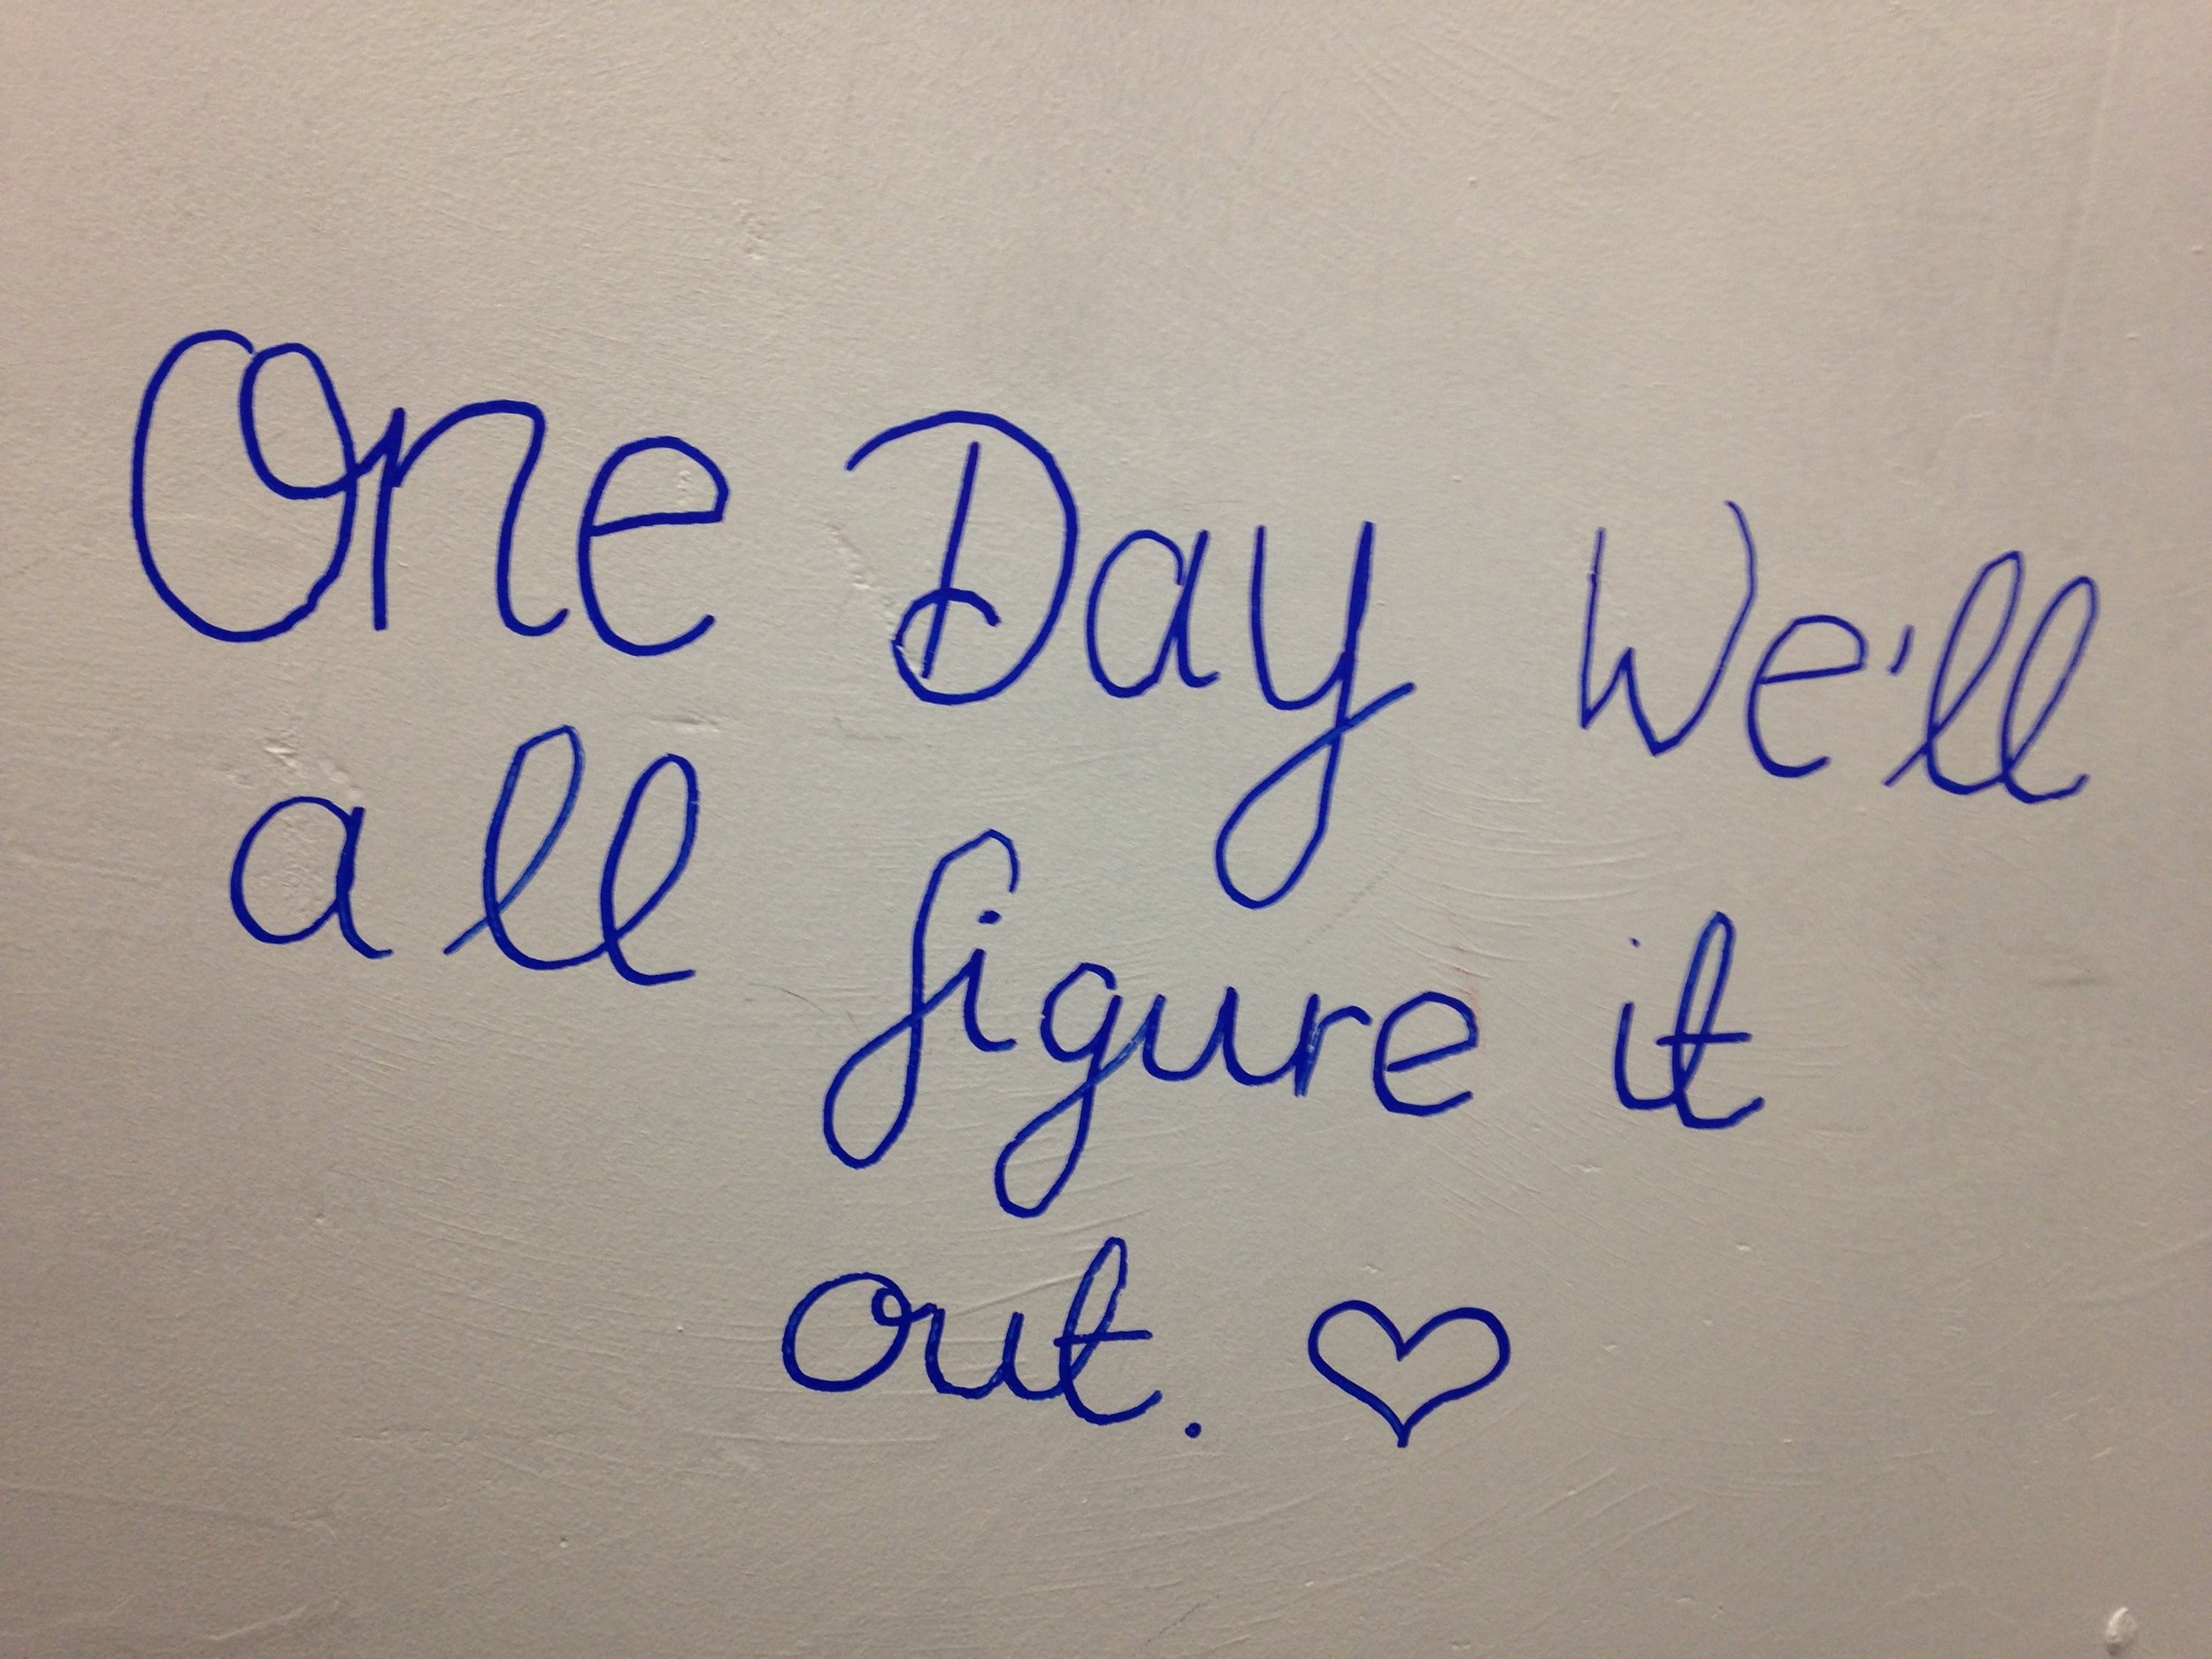 One Day We'll
all figure it
out. ♡